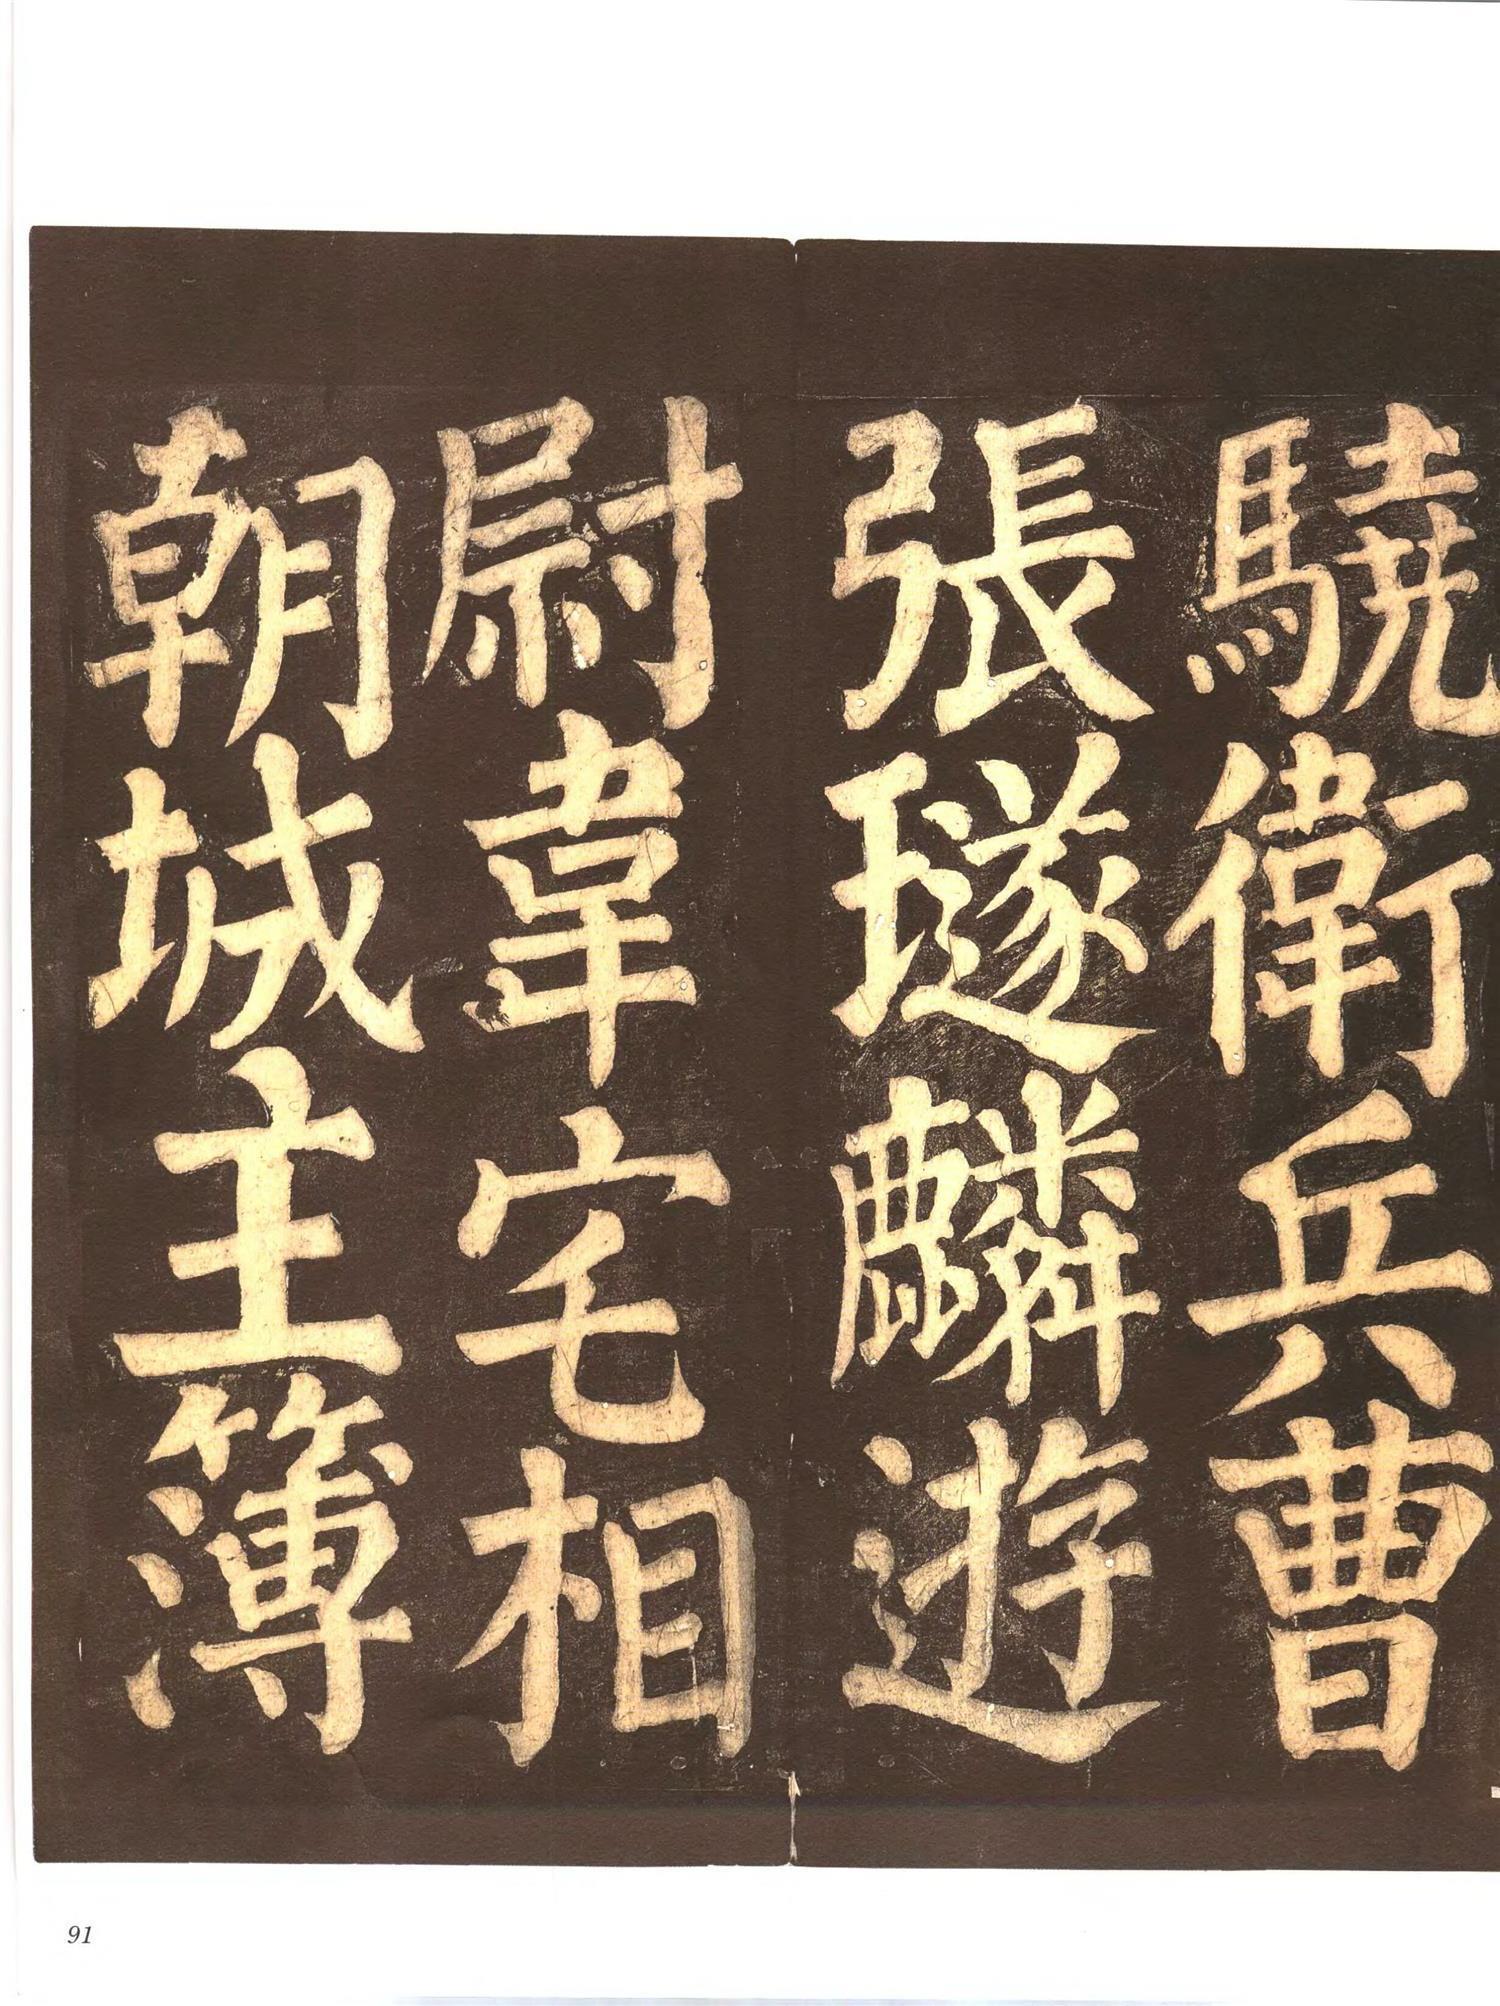 驍衛兵曹
張璲麟遊
尉韋宅相
朝城主簿
91